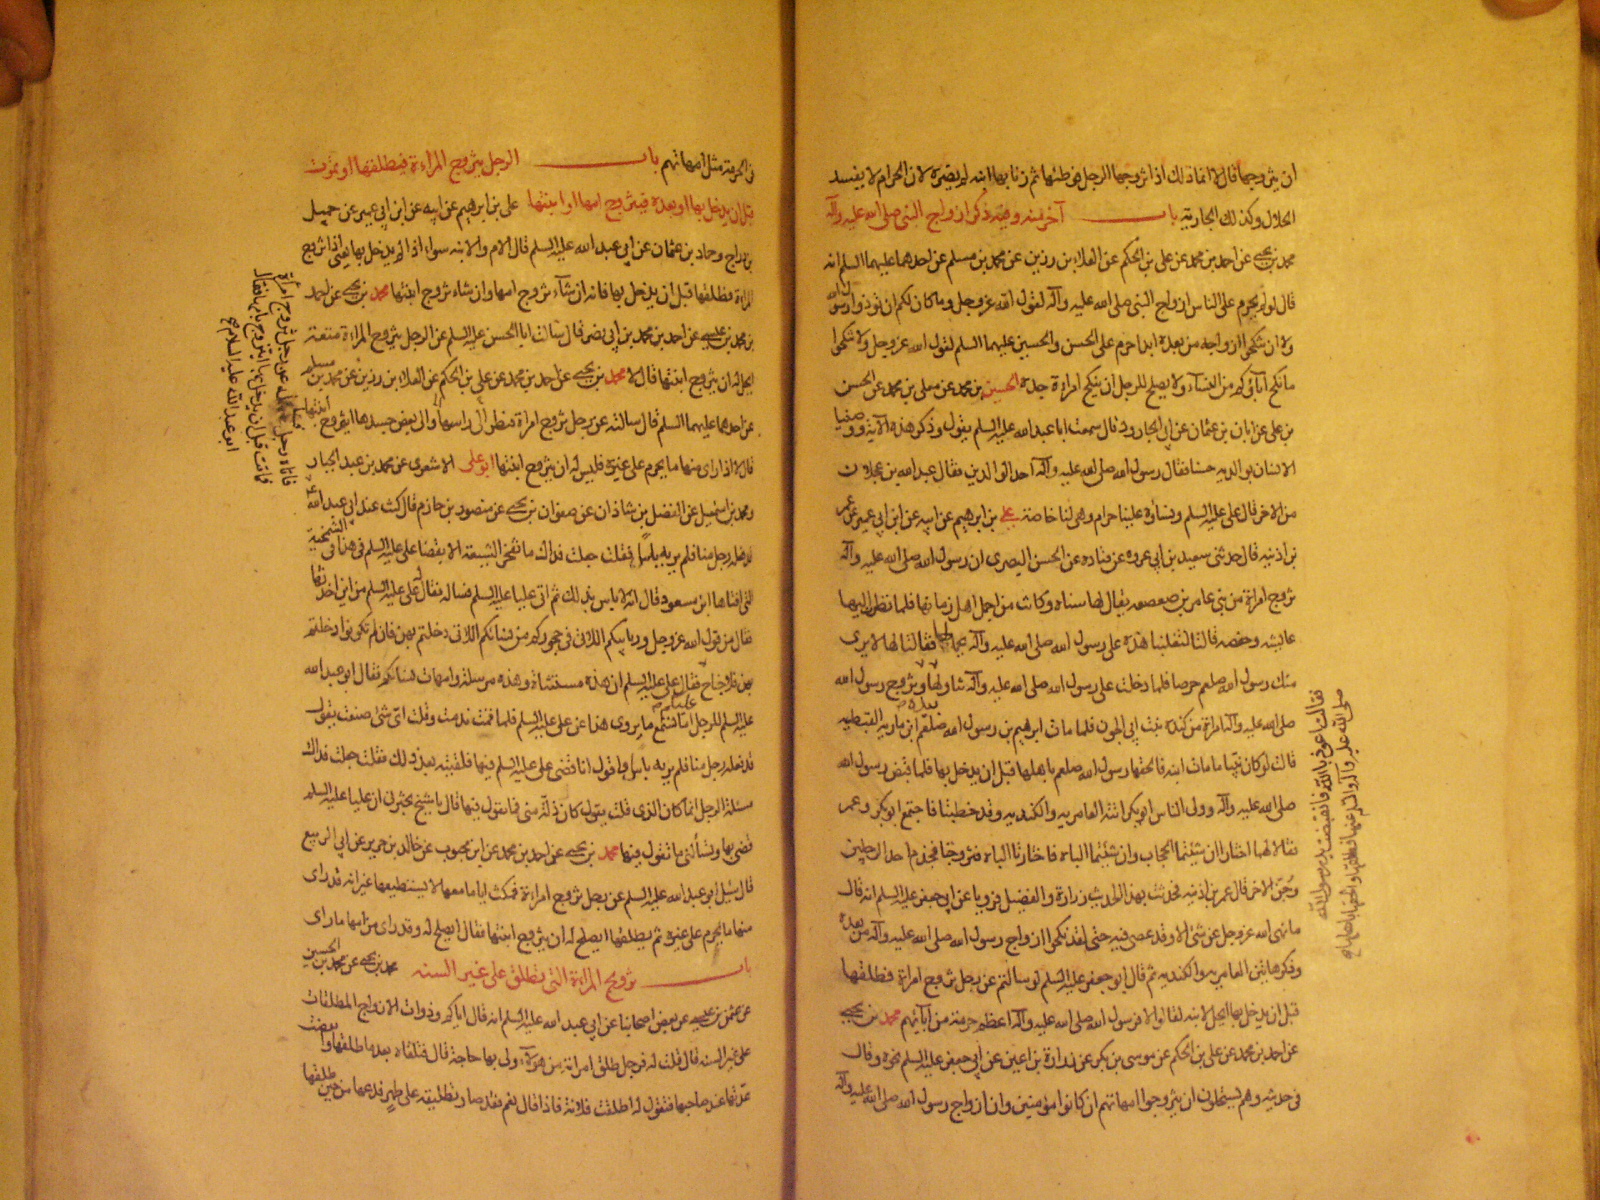 ان يتزوجها قال لا انما ذلك اذا تزوجها الرجل فوطئها ثم زنا بها ابنه لم يضره لان الحرام لا يفسد
الحلال وكذلك الجارية باب آخر منه وفيه ذكر ازواج النبي صلى الله عليه وآله
محمد بن يحيى عن احمد بن محمد عن علي بن الحكم عن العلاء بن رزين عن محمد بن مسلم عن احدهما عليهما السلم انه
قال لو لم يحرم على الناس ازواج النبي صلى الله عليه وآله لقول الله عز وجل وما كان لكم ان تؤذوا رسول الله
ولا ان تنكحوا ازواجه من بعده ابدا حرم على الحسن والحسين عليهما السلم لقول الله عز وجل ولا تنكحوا
ما نكح آباؤكم من النساء ولا يصلح للرجل ان ينكح امراءة جده الحسين بن محمد عن معلى بن محمد عن الحسن
بن علي عن ابان بن عثمان عن ابي الجارود قال سمعت ابا عبد الله عليه السلم يقول وذكر هذه الآية ووصينا
الانسان بوالديه حسنا فقال رسول الله صلى الله عليه وآله احد الوالدين فقال عبد الله بن عجلان
من الاخر قال علي عليه السلم ونساؤه علينا حرام وهي لنا خاصة علي بن ابرهيم عن ابيه عن ابن ابي عمير عن عمر
بن اذينه قال حدثني سعيد بن ابي عروه عن قتاده عن الحسن البصرى ان رسول الله صلى الله عليه وآله
تزوج امراة من بني عامر بن صعصعه يقال لها سناه وكانت من اجمل اهل زمانها فلما نظرت اليها
عايشه وحفصه قالتا لتغلبنا هذه على رسول الله صلى الله عليه وآله بجمالها فقالتا لها لا يرى
منك رسول الله صلعم حرصا فلما دخلت على رسول الله صلى الله عليه وآله تناولها بيده وتزوج رسول الله
فقالت اعوذ بالله فانقبضت يد رسول الله
صلى الله عليه وآله والسلم عنها فطلقها والحقها باهلها صح
صلى الله عليه وآله امراة من كنده بنت ابي الجون فلما مات ابرهيم بن رسول الله صلعم ابن مارية القبطيه
قالت لو كان نبيا ما مات ابنه فالحقها رسول الله صلعم باهلها قبل ان يدخل بها فلما قبض رسول الله
صلى الله عليه وآله وولى الناس ابو بكر اتته العامريه والكنديه وقد خطبتا فاجتمع ابو بكر وعمر
فقالا لهما اختارا ان شئتما الحجاب وان شئتما الباه فاختارتا الباه فتزوجتا فجذم احد الرجلين
وجن الاخر قال عمر بن اذينه فحدثت بهذا الحديث زرارة والفضيل فرويا عن ابي جعفر عليه السلم انه قال
ما نهى الله عز وجل عن شئ الا وقد عصى فيه حتى لقد نكحوا ازواج رسول الله صلى الله عليه وآله من بعده
وذكر هاتين العامريه والكنديه ثم قال ابو جعفر عليه السلم لو سالتم عن رجل تزوج امراة فطلقها
قبل ان يدخل بها اتحل لابنه لقالوا لا فرسول الله صلى الله عليه وآله اعظم حرمة من آبائهم محمد بن يحيى
عن احمد بن محمد عن علي بن الحكم عن موسى بن بكر عن زرارة بن اعين عن ابي جعفر عليه السلم نحوه وقال
في حديثه وهم يستحلون ان يتزوجوا امهاتهم ان كانوا مؤمنين وان ازواج رسول الله صلى الله عليه وآله
في الحرمة مثل امهاتهم باب الرجل يتزوج المراءة فيطلقها او تموت
قبل ان يدخل بها او بعده فيتزوج امها او ابنتها علي بن ابرهيم عن ابيه عن ابن ابي عمير عن جميل
بن دراج وحماد بن عثمان عن ابي عبد الله عليه السلم قال الام والابنه سواء اذا لم يدخل بها يعني اذا تزوج
المراة فطلقها قبل ان يدخل بها فانه ان شآء تزوج امها وان شاء تزوج ابنتها محمد بن يحيى عن احمد
بن محمد بن عيسى عن احمد بن محمد بن ابي نصر قال سالت ابا الحسن عليه السلم عن الرجل يتزوج المراءة متعة
ايحل له ان يتزوج ابنتها قال لا محمد بن يحيى عن احمد بن محمد عن علي بن الحكم عن العلاء بن رزين عن محمد بن مسلم
عن احدهما عليهما السلم قال سالته عن رجل تزوج امراة فنظر الى راسها والى بعض جسدها ايتزوج ابنتها
قال لا اذا راى منها ما يحرم على غيره فليس له ان يتزوج ابنتها ابو علي الاشعرى عن محمد بن عبد الجبار
ومحمد بن اسمعيل عن الفضل بن شاذان عن صفوان بن يحيى عن منصور بن حازم قال كنت عند ابي عبد الله
فاتاه رجل فسئله عن رجل تزوج امراة
فماتت قبل ان يدخل بها ايتزوج بامها فقال
ابو عبد الله عليه السلام صح
قد فعله رجل منا فلم ير به باسا فقلت جعلت فداك ما تفخر الشيعة الا بقضا علي عليه السلم في هذا في الشمخية
التي افتاها ابن مسعود قال انه لا باس بذلك ثم اتى عليا عليه السلم فساله فقال له علي عليه السلم من اين اخذتها
فقال من قول الله عز وجل وربايبكم اللاتي في حجوركم من نسائكم اللاتي دخلتم بهن فان لم تكونوا دخلتم
بهن فلا جناح عليكم فقال علي عليه السلم ان هذه مستثناة وهذه مرسلة وامهات نسائكم فقال ابو عبد الله
عليه السلم للرجل اما تسمع ما يروى هذا عن علي عليه السلم فلما قمت ندمت وقلت اى شئ صنعت يقول
قد فعله رجل منا فلم ير به باسا واقول انا قضى علي عليه السلم فيها فلقيته بعد ذلك فقلت جعلت فداك
مسئلة الرجل انما كان الذى قلت يقول كان زلة منى فما تقول فيها قال يا شيخ تخبرنى ان عليا عليه السلم
قضى بها وتسألنى ما تقول فيها محمد بن يحيى عن احمد بن محمد عن ابن محبوب عن خالد بن جرير عن ابي الربيع
قال سئل ابو عبد الله عليه السلم عن رجل تزوج امراءة فمكث اياما معها لا يستطيعها غير انه قد راى
منها ما يحرم على غيره ثم يطلقها ايصلح له ان يتزوج ابنتها فقال ايصلح له وقد راى من امها ما راى
باب تزويج المراءة التي تطلق على غير السنه محمد بن يحيى عن محمد بن الحسين
عن عثمن بن عيسى عن بعض اصحابنا عن ابي عبد الله عليه السلم انه قال اياكم وذوات الازواج المطلقات
على غير السنه قال قلت له فرجل طلق امراته من هؤلاء ولى بها حاجة قال فتلقاه بعد ما طلقها وانقضت
عدتها عند صاحبها فتقول له اطلقت فلانة فاذا قال نعم فقد صار تطليقه على طهر فدعها من حين طلقها